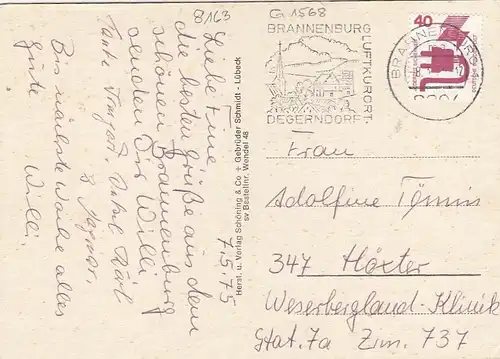 8163
G 1568
Liebe Fine
die besten Grüße aus dem
schönen Brannenburg
senden Dir Willi
Tante Irmgard, Onkel Karl
Bis nächste Woche alles
Gute
Willi
7.5.75
Herst. u. Verlag Schöning & Co + Gebrüder Schmidt - Lübeck
sv Bestellnr. Wendel 48
BRANNENBURG
LUFTKURORT
DEGERNDORF
BRANNENBURG
40
Frau
Adolfine Tönnis
347 Höxter
Weserbergland-Klinik
Stat. 7a Zim. 737